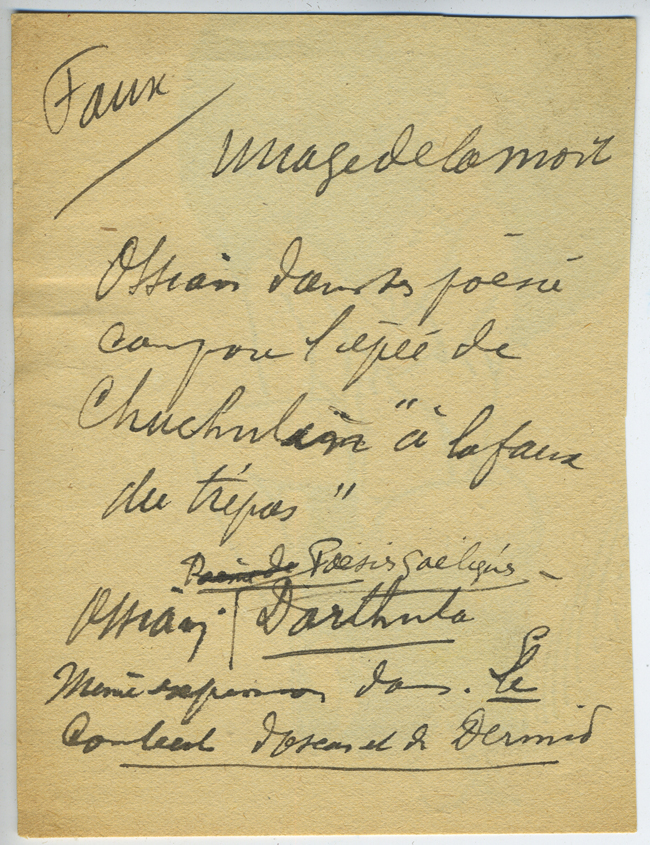 Faux
Image de la mort
Ossian dans ses poésie
compare l'épée de
Chuchulain "à la faux
du trépas"
Poème de Poésies Gaéliques
Ossian, Darthula
Même expression dans. Le
Combat d'Oscar et de Dermid